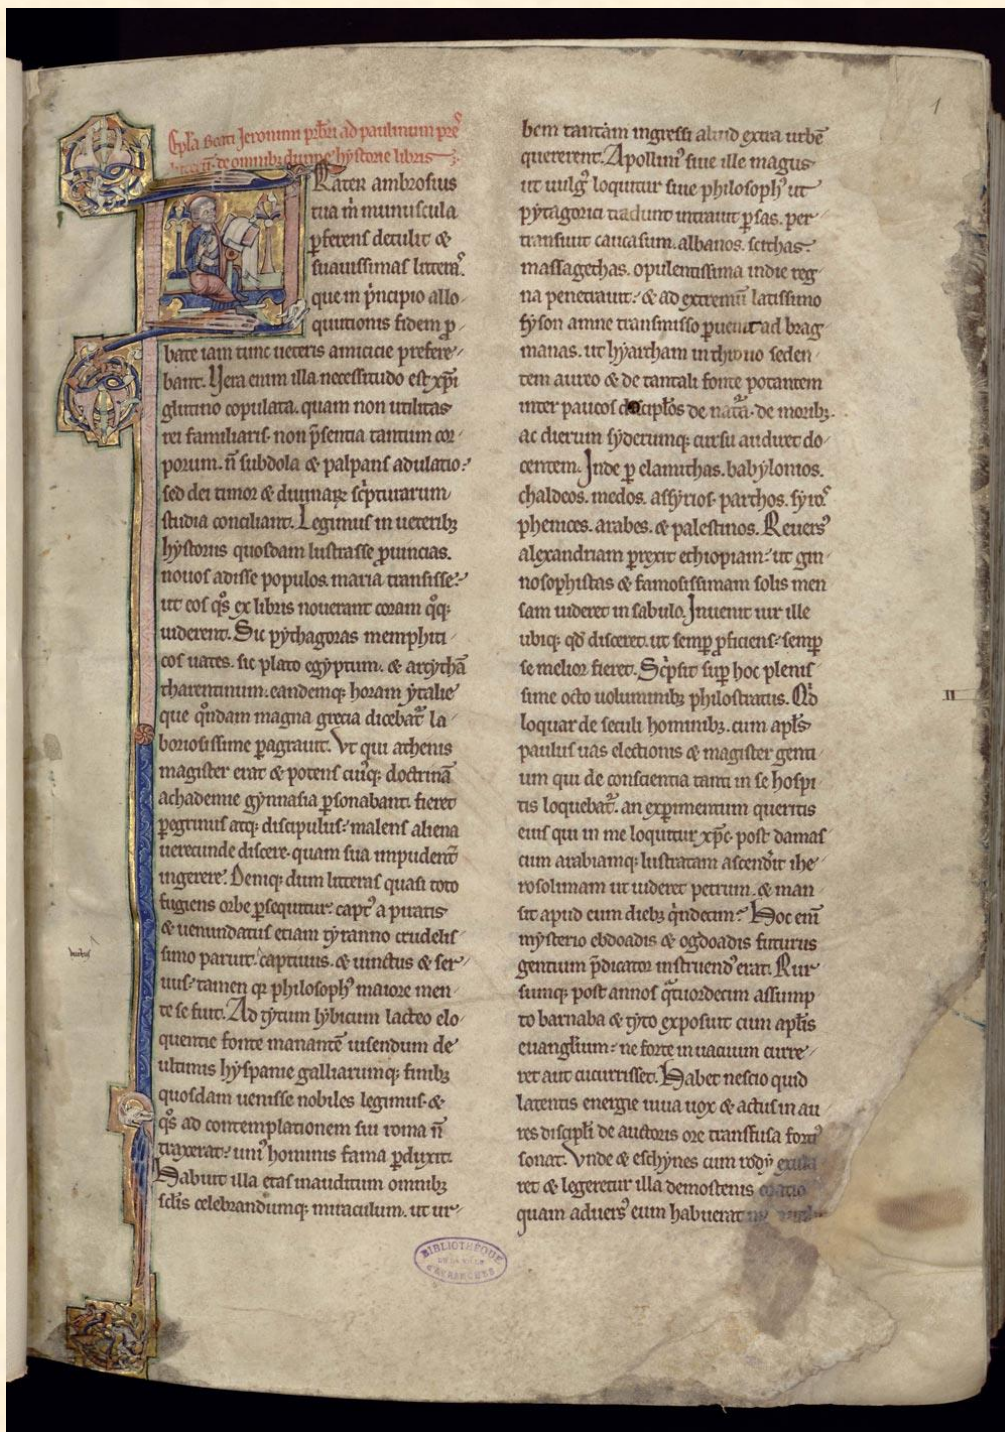 Epl'a Beati Jeronimi pr̅bri ad paulinum pre
de omnibȝ diuine hystorie libris
Rater ambrosius
tua m̅ munuscula
p̱ferens detulit &
suauissimas littera.ˢ
que in pͥncipio allo
quutionis fidem p̱
bate iam tunc ueteris amicicie prefere
bant. Vera enim illa necessitudo est xp̅i
glutino copulata. quam non utilitas
rei familiaris. non p̅sentia tantum cor
porum. n̅ subdola & palpans adulatio.
sed dei timor & diuinaꝝ scͥpturarum
studia conciliant. Legimus in ueteribȝ
hystoriis quosdam lustrasse ꝓuincias.
nouos adisse populos. maria transisse.
ut eos qͦs ex libris nouerant coram qͦqȝ
uiderent. Sic pythagoras memphiti
cos uates. sic plato egyptum. & archyta̅
tharentinum. eandemqȝ horam ytalie
que qͦndam magna grecia dicebat᷑ la
boriosissime ꝑagrauit. Vt qui athenis
magister erat & potens cuiꝰqȝ doctrina̅
achademie gymnasia ꝑsonabant. fieret
ꝑegrinus atqȝ discipulus. malens aliena
uerecunde discere. quam sua impudent᷑
ingerere. Deniqȝ dum litteras quasi toto
fugiens orbe ꝑsequitur. captꝰ a piratis
& uenundatus etiam tyranno crudelis
simo paruit. captiuus. & uinctus & ser
uus. tamen qꝛ philosophꝰ maiore emen
te se fuit. Ad tytum lybicum lacteo elo
quentie fonte manante̅ uisendum de
ultimis hyspanie galliarumqȝ finibȝ
quosdam uenisse nobiles legimus. &
qͦs ad contemplationem sui roma n̅
traxerat. uniꝰ hominis fama ꝑduxit.
Habuit illa etas inauditum omnibȝ
sclis celebrandumqȝ miraculum. ut ur
1
bem tantam ingressi aliud extra urbe̅
quererent. Apolliniꝰ siue ille magus
ut uulgꝰ loquitur siue philosophꝰ ut
pytagorici tradunt intrauit ꝑsas. per
transiuit caucasum. albanos. scithas.
massagethas. opulentissima indie reg
na penetrauit. & ad extremu̅ latissimo
fyson amne transmisso ꝑuenit ad brag
manas. ut hyarcham in throno seden
tem aureo & de tantali fonte potantem
inter paucos discipl̅os de nat᷑a. de moribȝ.
ac dierum syderumqȝ cursu audiret do
centem. Inde ꝑ elamithas. babylonios.
chaldeos. medos. assyrios. parthos. syro.ˢ
phenices. arabes. & palestinos. Reuersꝰ
alexandriam ꝑrexit ethiopiam. ut gin
nosophistas & famosissimam solis men
sam uideret in sabulo. Inuenit uir ille
ubiqȝ qd̅ disceret. ut semꝑ ꝓficiens. semꝑ
se melior fieret. Scͥpsit suꝑ hoc plenis
sime octo uoluminibȝ philostratus. Qͥd
II
loquar de seculi hominibȝ. cum apl̅s
paulus uas electionis & magister genti
um qui de conscientia tanti in se hospi
tis loquebat᷑. an exꝑimentum queritis
eius qui in me loquitur xp̅c. post damas
cum arabiamqȝ lustratam ascendit ihe
rosolimam ut uideret petrum. & man
sit apud eum diebȝ qͥndecim. Hoc eni̅
mysterio ebdoadis & ogdoadis futurus
gentium p̅dicator instruendꝰ erat. Rur
sumqȝ post annos qͣtuordecim assump
to barnaba & tyto exposuit cum apl̅is
euangl̅ium. ne forte in uacuum curre
ret aut cucurrisset. Habet nescio quid
latentis energie uiua uox & actus in au
res discipl̅i de auctoris ore transfusa fortiꝰ
sonat. Vnde & eschynes cum rodi exula
ret & legeretur illa demostenis oratio
quam aduersꝰ eum habuerat
BIBLIOTHÈQUE
DE LA VILLE
D'AVRANCHES